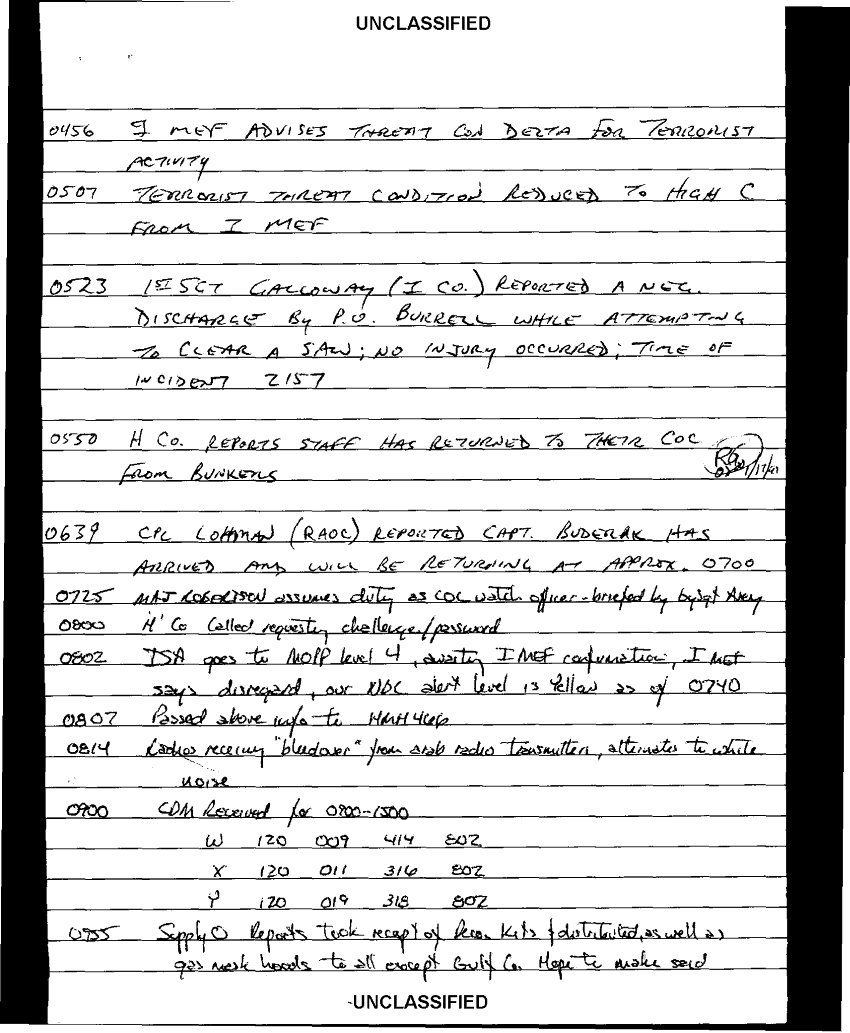 UNCLASSIFIED
0456 I MEF ADVISES THREAT CON DELTA FOR TERRORIST
ACTIVITY
0507 TERRORIST THREAT CONDITION REDUCED TO HIGH C
FROM I MEF
0523 1ST SGT GALLOWAY (I CO.) REPORTED A NEG.
DISCHARGE BY P.O. BURRELL WHILE ATTEMPTING
TO CLEAR A SAW; NO INJURY OCCURRED; TIME OF
INCIDENT 2157
0550 H CO. REPORTS STAFF HAS RETURNED TO THEIR COC
FROM BUNKERS
0639 CPL LOHMAN (RAOC) REPORTED CAPT. BUDERAK HAS
ARRIVED AND WILL BE RETURNING AT APPROX. 0700
0725 MAJ ROBERTSON assumes duty as COC watch officer - briefed by GySgt Avery
0800 H' Co Called requesting challenge/password
0802 TSA goes to MOPP level 4, awaiting I MEF confirmation, I MEF
says disregard, our NBC alert level is Yellow as of 0740
0807 Passed above info to HMH 466
0814 Radios receiving "bleedover" from arab radio transmitters, alternates to white
noise
0900 CDM Received for 0900-1500
W 120 009 414 802
X 120 011 316 802
Y 120 019 318 802
0955 Supply O Reports Took recept of Decon Kits & distributed, as well as
gas mask hoods to all except Gulf Co. Hope to make said
UNCLASSIFIED